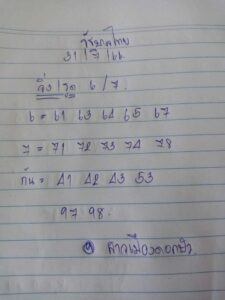 รัฐบาลไทย
31 / 7 / 66
วิ่ง / รูด 6 / 7
6 = 61 63 64 65 67
7 = 71 72 73 74 78
กัน = 41 42 43 53
97 98
สาวเมืองดอกบัว